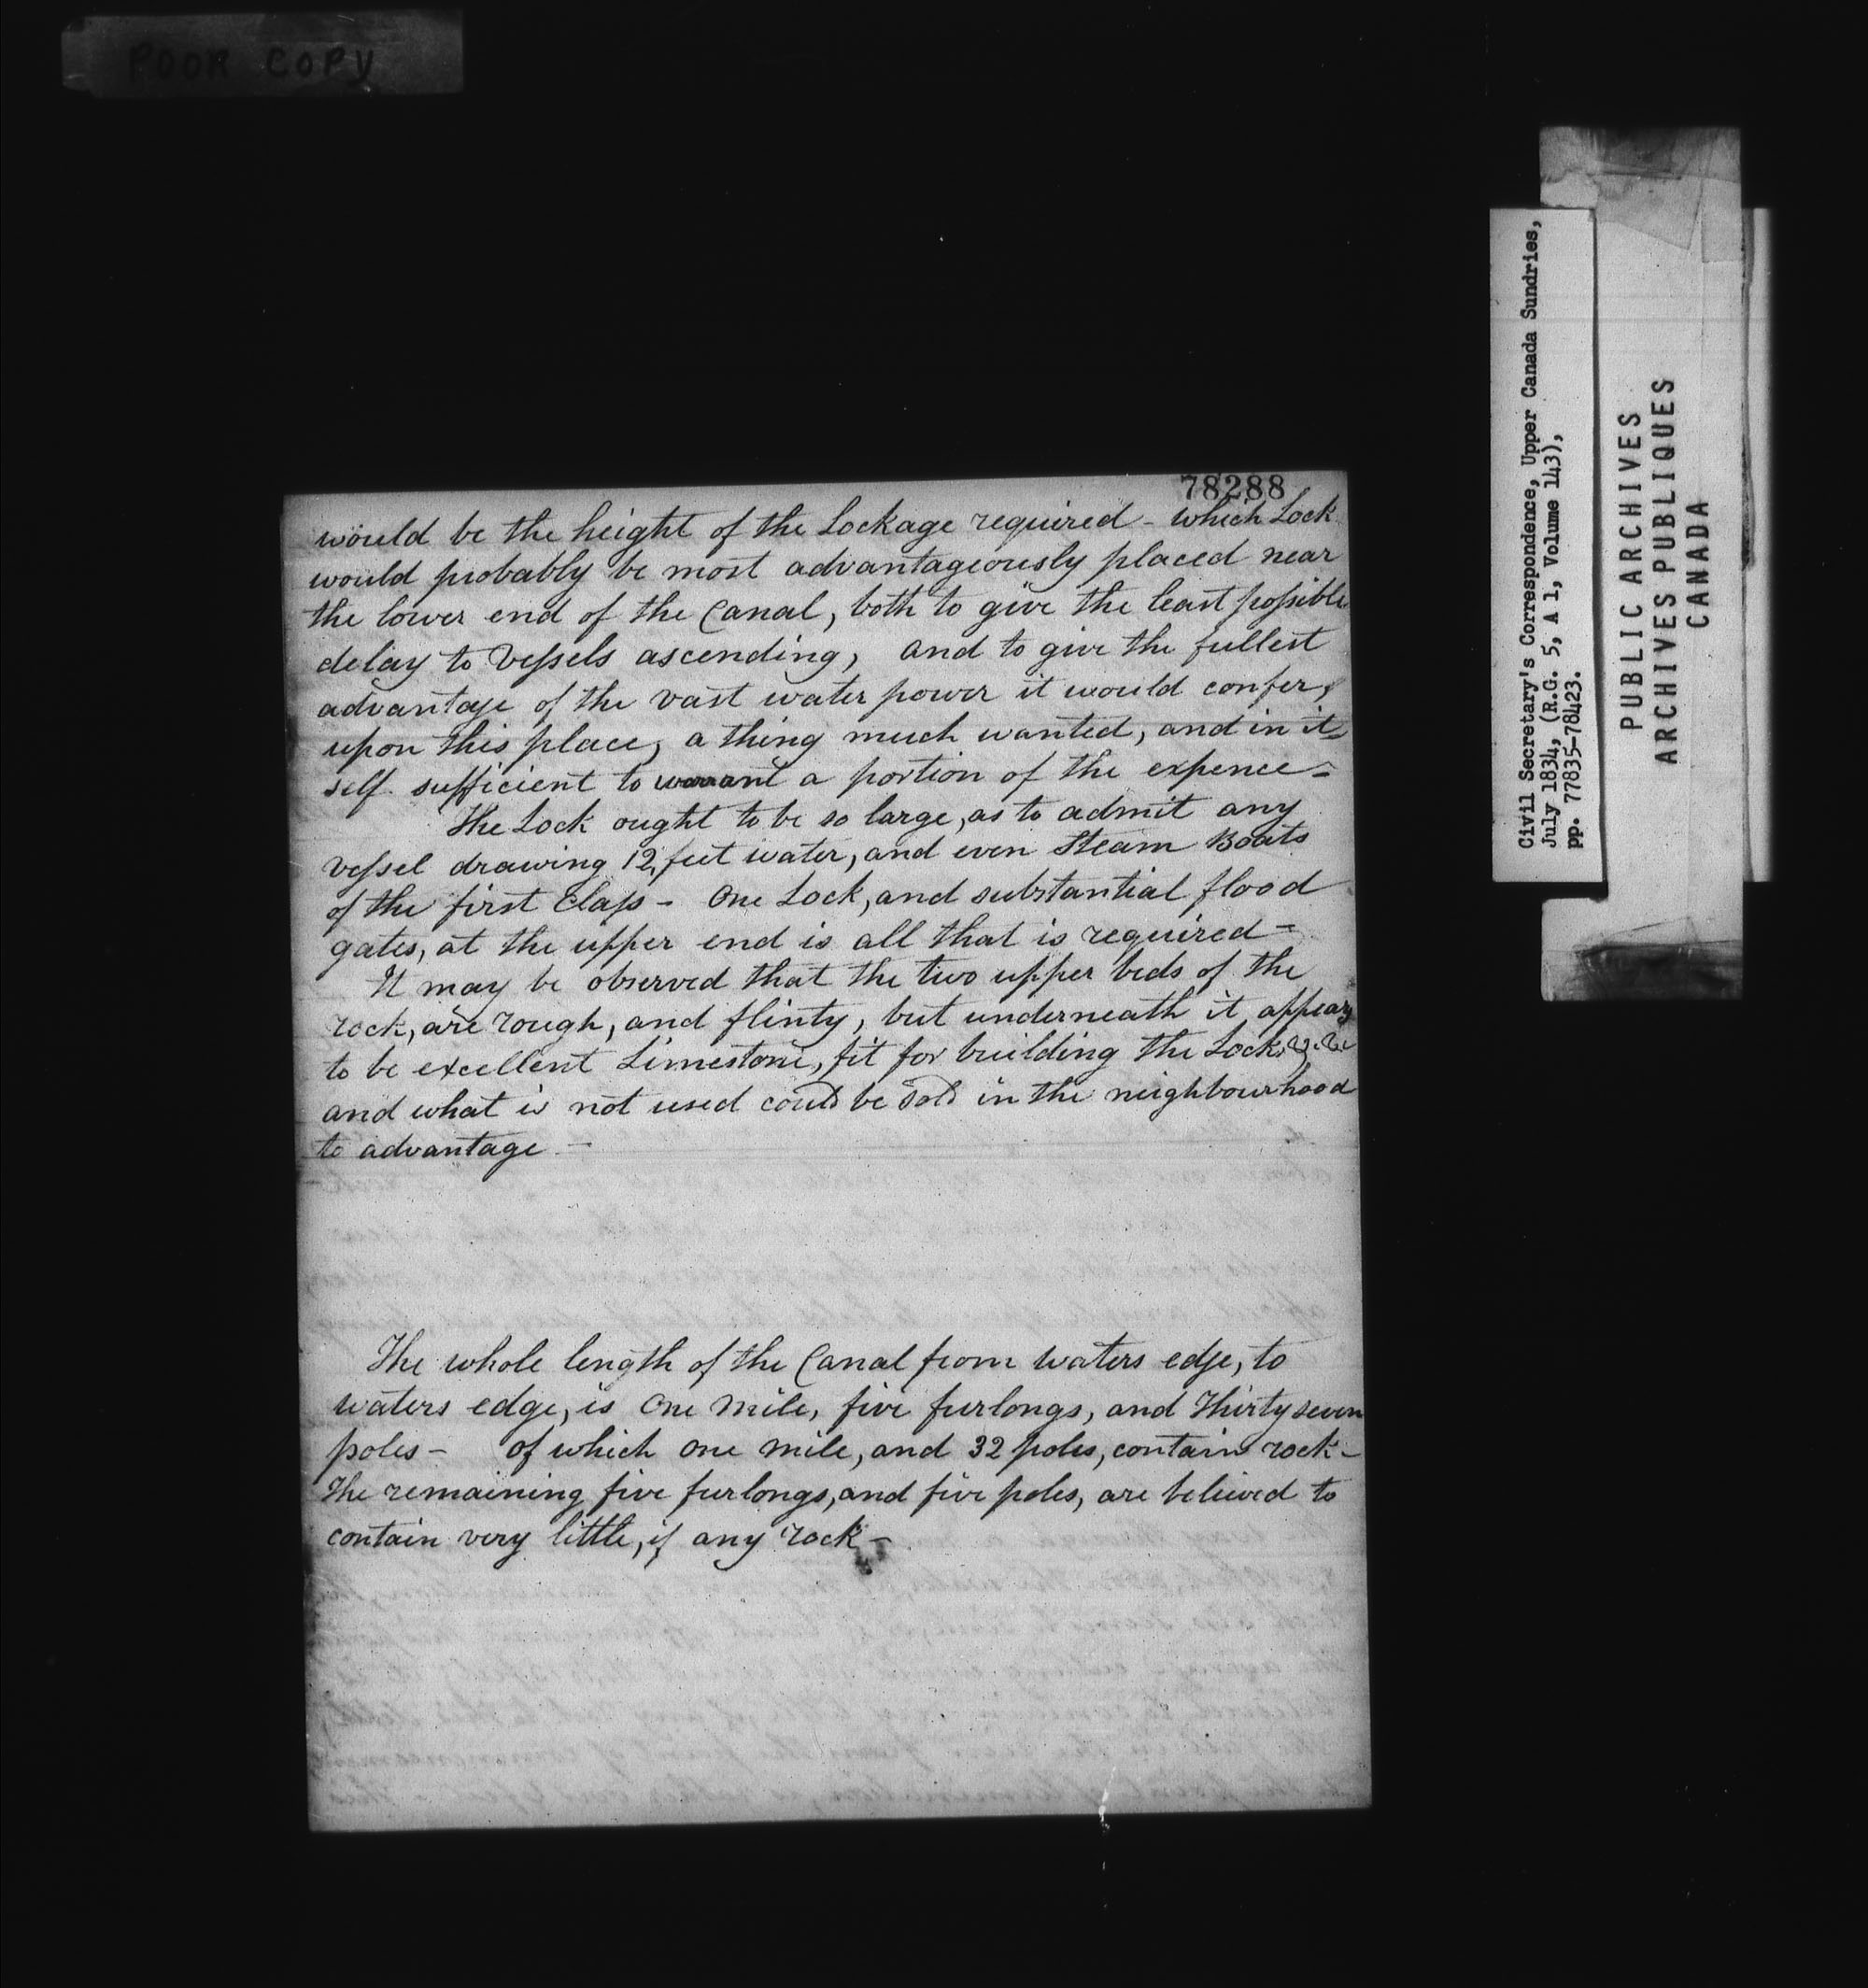 POOR COPY
78288
would be the height of the Lockage required - which Lock
would probably be most advantageously placed near
the lower end of the Canal, both to give the least possible
delay to Vessels ascending, and to give the fullest
advantage of the vast water power it would confer,
upon this place, a thing much wanted, and in it
self sufficient to warrant a portion of the expence =
The Lock ought to be so large, as to admit any
vessel drawing 12 feet water, and even Steam Boats
of the first Class - One Lock, and substantial flood
gates, at the upper end is all that is required =
It may be observed that the two upper beds of the
rock, are rough, and flinty, but underneath it appears
to be excellent Limestone, fit for building the Locks &c &c
and what is not used could be sold in the neighbourhood
to advantage -
The whole length of the Canal from waters edge, to
waters edge, is One Mile, five furlongs, and Thirty seven
poles - of which one mile, and 32 poles, contain rock -
The remaining five furlongs, and five poles, are believed to
contain very little, if any rock -
Civil Secretary's Correspondence, Upper Canada Sundries,
July 1834, (R.G. 5, A 1, Volume 143),
pp. 77835-78423.
PUBLIC ARCHIVES
ARCHIVES PUBLIQUES
CANADA